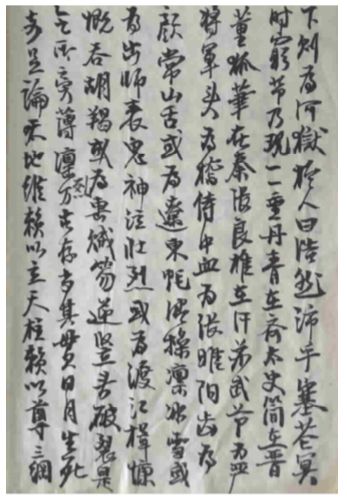 下則為河嶽於人曰浩然沛乎塞苍冥
时窮节乃现一一垂丹青在齐太史简在晋
董狐筆在秦張良椎在汉苏武节为严
将军头为嵇侍中血为張睢阳齿为
颜常山舌或为遼東帽清操凛冰雪或
为出师表鬼神泣壮烈或为渡江楫慷
慨吞胡羯或为击贼笏逆竖头破裂是
气所旁薄凛烈万古存当其贯日月生死
安足論天地维赖以立天柱赖以尊三綱